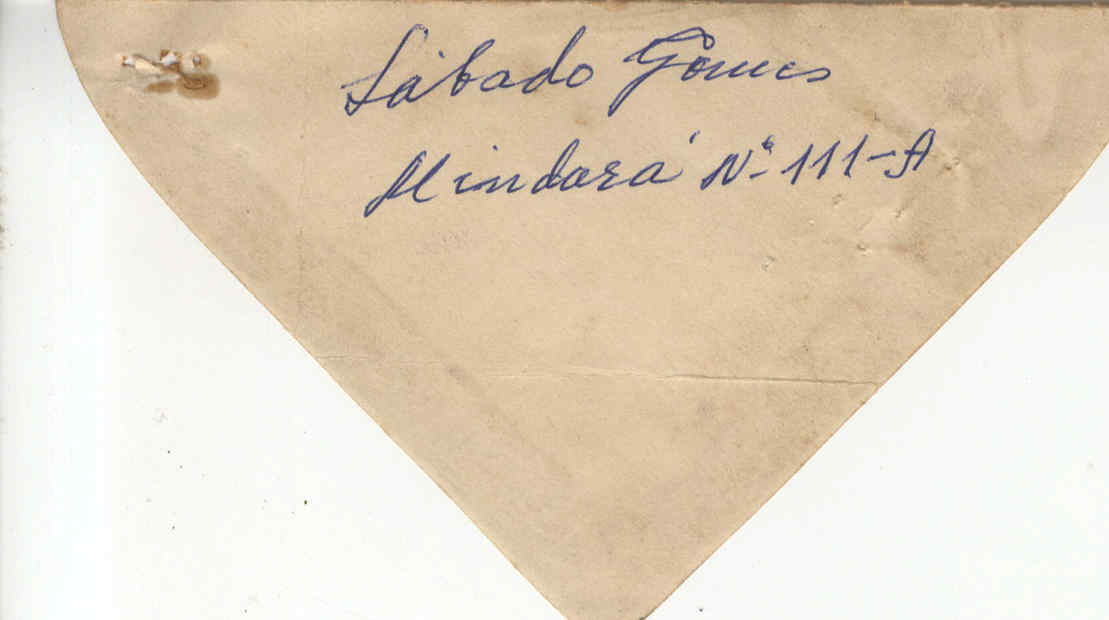 Sábado Gomes
Mindará Nº 111-A